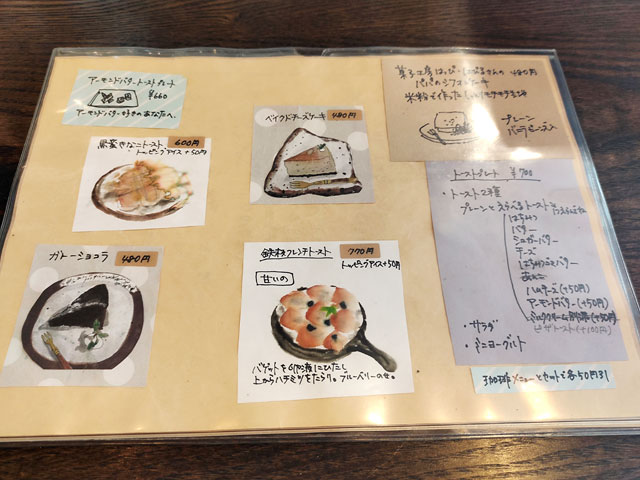 アーモンドバタートースト
¥660
アーモンドバター好きのあなたへ。
黒蜜きなこトースト 600円
・トッピングアイス+50円
ベイクドチーズケーキ 480円
菓子工房 480円
米粉で作った
プレーン
トーストプレート ¥700
・トースト2種
プレーンと
はちみつ
バター
シュガーバター
チーズ
はちみつバター
あんこ
ハムチーズ(+50円)
アーモンドバター(+50円)
ピザトースト(+100円)
・サラダ
・ミニヨーグルト
珈琲メニューとセットで各50円引
ガトーショコラ 480円
鉄板フレンチトースト 770円
トッピングアイス+50円
甘いの
バゲットを 液にひたし、
上からハチミツをたらり。ブルーベリーのせ。